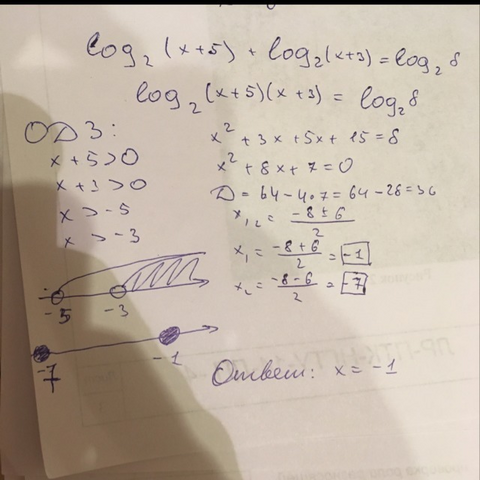 log₂(x+5) + log₂(x+3) = log₂8
log₂(x+5)(x+3) = log₂8
ОДЗ:
x+5>0
x+3>0
x>-5
x>-3
-5 -3
-7 -1
x² + 3x + 5x + 15 = 8
x² + 8x + 7 = 0
D = 64 - 4·7 = 64 - 28 = 36
x₁,₂ = (-8±6)/2
x₁ = (-8+6)/2 = -1
x₂ = (-8-6)/2 = -7
Ответ: x = -1